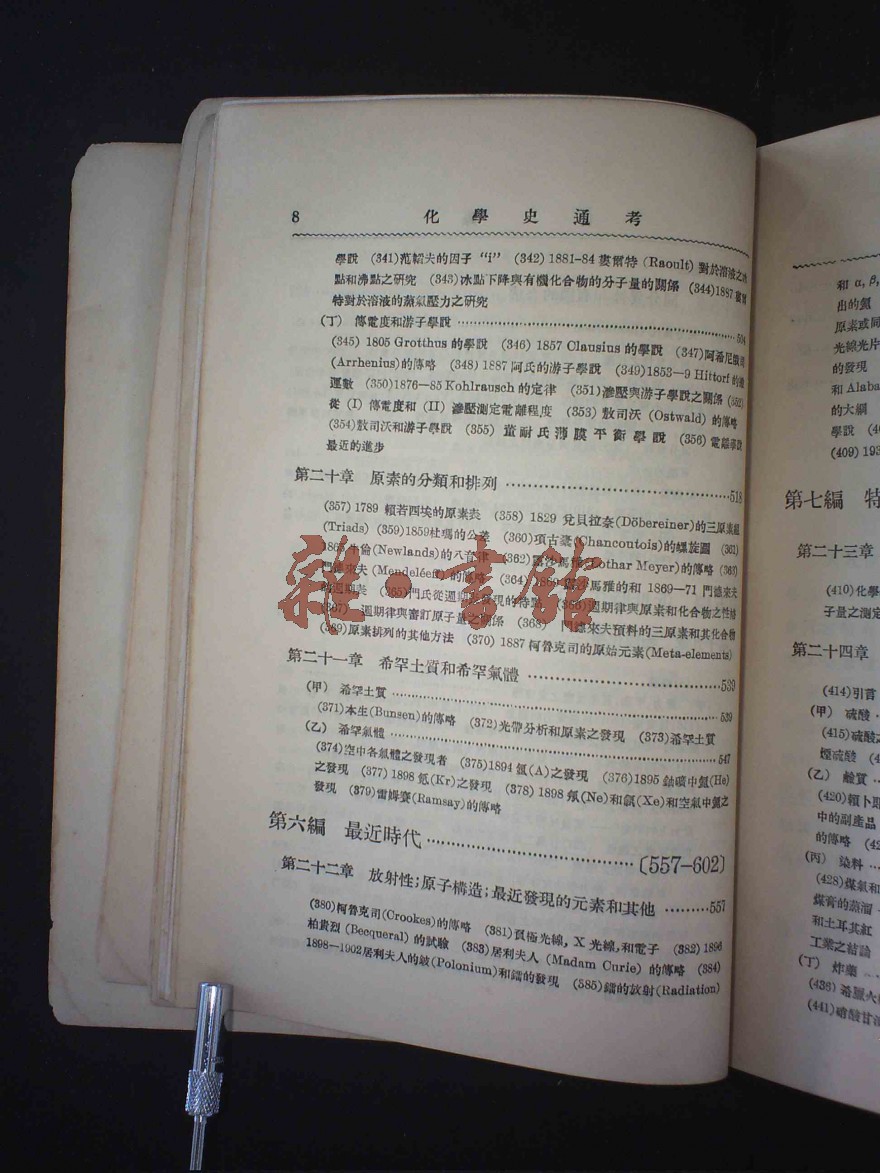 8 化學史通考
學說 (341)范韜夫的因子 “i” (342) 1881-84 (Raoult) 對於溶液之冰
點和沸點之研究 (343)冰點下降與有機化合物的分子量的關係 (344)1887
特對於溶液的蒸氣壓力之研究
(丁) 傳電度和游子學說 504
(345) 1805 Grotthus 的學說 (346) 1857 Clausius 的學說 (347)阿希尼
(Arrhenius)的傳略 (348) 1887 阿氏的游子學說 (349)1853—9 Hittorf 的
運數 (350)1876—85 Kohlrausch 的定律 (351)滲壓與游子學說之關係 (352)
從 (I) 傳電度和 (II) 滲壓測定電離程度 (353) 敖司沃 (Ostwald) 的傳略
(354)敖司沃和游子學說 (355) 董耐氏薄膜平衡學說 (356)電離學說
最近的進步
第二十章 原素的分類和排列 518
(357) 1789 賴若西埃的原素表 (358) 1829 兌貝拉奈(Döbereiner)的三原素組
(Triads) (359)1859杜瑪的公差 (360)項古臺(Chancoutois)的螺旋圖 (361)
1865牛倫(Newlands)的八音律 (362) 沙馬雅(Lothar Meyer)的傳略 (363)
門德來夫 (Mendeléeff)的傳略 (364) 沙馬雅的和 1869—71 門德來夫
的週期表 (365)門氏從週期表發現的特點 (366)週期律與原素和化合物之性質
(367) 週期律與審訂原子量之關係 (368) 門德來夫預料的三原素和其化合物
(369)原素排列的其他方法 (370) 1887 柯魯克司的原始元素(Meta-elements)
第二十一章 希罕土質和希罕氣體 539
(甲) 希罕土質 539
(371)本生(Bunsen)的傳略 (372)光帶分析和原素之發現 (373)希罕土質
(乙) 希罕氣體 547
(374)空中各氣體之發現者 (375)1894 氬(A)之發現 (376)1895 鈾礦中氦(He)
之發現 (377) 1898 氪(Kr)之發現 (378) 1898 氖(Ne)和氙(Xe)和空氣中氦之
發現 (379)雷姆賽(Ramsay)的傳略
第六編 最近時代 〔557-602〕
第二十二章 放射性;原子構造;最近發現的元素和其他 557
(380)柯魯克司(Crookes)的傳略 (381)負極光線, X 光線,和電子 (382) 1896
柏貴烈 (Becqueral) 的試驗 (383)居利夫人 (Madam Curie) 的傳略 (384)
1898—1902居利夫人的(Polonium)和鐳的發現 (585)鐳的放射(Radiation)
雜·書館
和 α, β,
出的氦
原素或同
光線光片
的發現
和 Alaba
的大綱
學說
(409) 193
第七編 特
第二十三章
(410)化學
子量之測定
第二十四章
(414)引言
(甲) 硫酸
(415)硫酸
煙硫酸
(乙) 鹼質
(420)賴卜
中的副產品
的傳略
(丙) 染料
(428)煤氣和
煤膏的蒸溜
和土耳其紅
工業之結論
(丁) 炸藥
(441)硝酸甘油